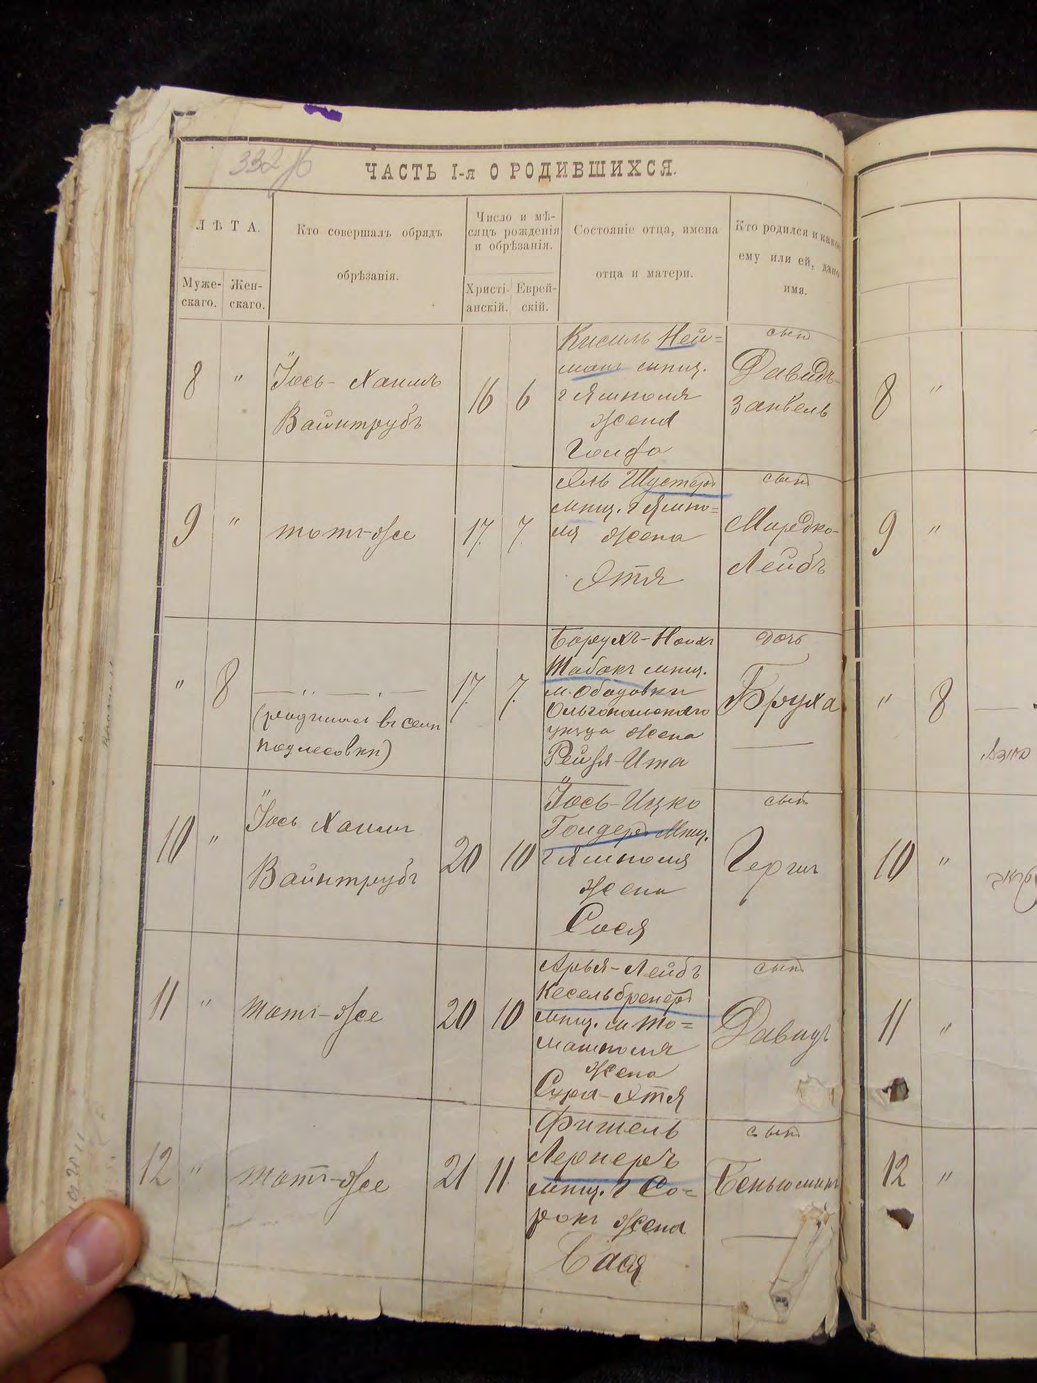 332 об
ЧАСТЬ I-я О РОДИВШИХСЯ.
Л Ѣ Т А.
Муже-
скаго.
Жен-
скаго.
Кто совершалъ обрядъ
обрѣзанія.
Число и мѣ-
сяцъ рожденія
и обрѣзанія.
Христі-
анскій.
Еврей-
скій.
Состояніе отца, имена
отца и матери.
Кто родился и какое
ему или ей, дано
имя.
8 " Іось-Хаимъ
Вайнтрубъ
16 6
Кисиль Ней=
манъ мѣщ.
г Ямполя
Жена
Голда
сынъ
Давидъ-
Занвель
8 "
9 " тотъ-же
17. 7.
Эль Шустеръ
мѣщ. г Ямпо=
ля Жена
Этя
сынъ
Мордко-
Лейбъ
9 "
" 8 — " — " —
(родилась въ селѣ
Подлесовки)
17. 7.
Борухъ-Ноихъ
Табакъ мѣщ.
м. Ободовки
Ольгопольскаго
уѣзда Жена
Рейзя-Ита
дочь
Бруха
" 8
10 " Іось Хаимъ
Вайнтрубъ
20 10
Іось-Ицко
Гольдеръ Мѣщ.
г Ямполя
Жена
Сося
сынъ
Гершъ
10 "
11 " тотъ-же
20 10
Арья-Лейбъ
Кесельбренеръ
мѣщ. м То=
машполя
Жена
Сура-Этя
сынъ
Давидъ
11 "
12 " тотъ-же
21 11.
Фишель
Лернеръ
мѣщ. г Со=
рокъ Жена
Бася
сынъ
Беньюминъ
12 "